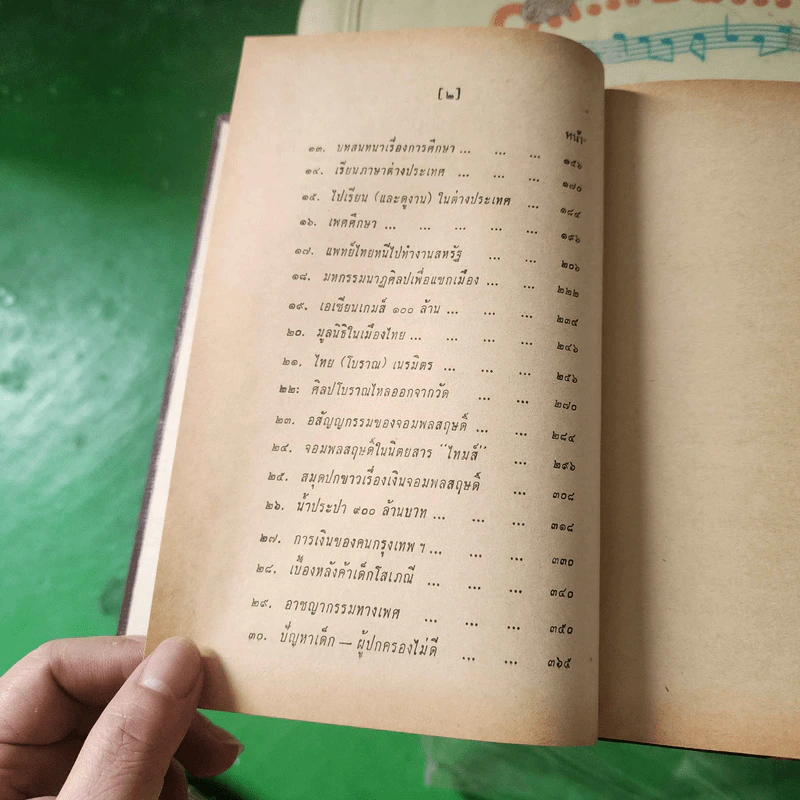 [๒]
หน้า
๑๓. บทสนทนาเรื่องการศึกษา ... ... ... ๑๕๖
๑๔. เรียนภาษาต่างประเทศ ... ... ... ๑๗๐
๑๕. ไปเรียน (และดูงาน) ในต่างประเทศ ... ๑๘๔
๑๖. เพศศึกษา ... ... ... ... ... ๑๙๖
๑๗. แพทย์ไทยหนีไปทำงานสหรัฐ ... ... ๒๐๖
๑๘. มหกรรมนาฏศิลปเพื่อแขกเมือง ... ... ๒๒๒
๑๙. เอเชียนเกมส์ ๑๐๐ ล้าน ... ... ... ๒๓๕
๒๐. มูลนิธิในเมืองไทย ... ... ... ... ๒๔๖
๒๑. ไทย (โบราณ) เนรมิตร ... ... ... ๒๕๖
๒๒: ศิลปโบราณไหลออกจากวัด ... ... ๒๗๐
๒๓. อสัญญกรรมของจอมพลสฤษดิ์ ... ... ๒๘๔
๒๔. จอมพลสฤษดิ์ในนิตยสาร "ไทมส์" ... ๒๙๖
๒๕. สมุดปกขาวเรื่องเงินจอมพลสฤษดิ์ ... ๓๐๘
๒๖. น้ำประปา ๙๐๐ ล้านบาท ... ... ... ๓๑๘
๒๗. การเงินของคนกรุงเทพ ฯ ... ... ... ๓๓๐
๒๘. เบื้องหลังค้าเด็กโสเภณี ... ... ... ๓๔๐
๒๙. อาชญากรรมทางเพศ ... ... ... ๓๕๐
๓๐. ปัญหาเด็ก — ผู้ปกครองไม่ดี ... ... ๓๖๕